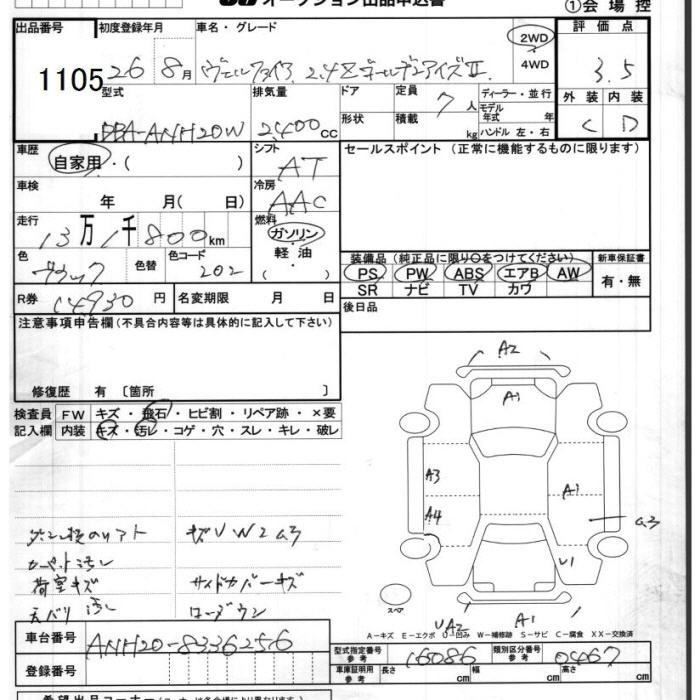 オークション出品申込書
①会場控
出品番号 初度登録年月 車名・グレード 2WD 評価点
1105 26 8月 ヴェルファイア 2.4Z ゴールデンアイズⅡ 4WD 3.5
型式 排気量 ドア 定員 7人 ディーラー・並行 外装 内装
DBA-ANH20W 2400cc 形状 積載 kg モデル年式 年 C D
ハンドル 左・右
車歴 自家用・( ) シフト AT セールスポイント (正常に機能するものに限ります)
車検 年 月( 日) 冷房 AAC
走行 13万1千800km 燃料 ガソリン
軽油
( )
色 ブラック 色替 色コード 202
装備品 (純正品に限り○をつけてください) 新車保証書
PS PW ABS エアB AW 有・無
SR ナビ TV カワ
R券 14930円 名変期限 月 日 後日品
注意事項申告欄 (不具合内容等は具体的に記入して下さい)
修復歴 有 〔箇所 〕
検査員 FW キズ・飛石・ヒビ割・リペア跡・×要
記入欄 内装 キズ・汚レ・コゲ・穴・スレ・キレ・破レ
A2
A1
A3 A1
A4 a3
U1
スペア
UA2 A1
キズUW2a3
カーペット汚レ
荷室キズ サイドカバーキズ
汚レ ローダウン
A-キズ E-エクボ U-凹み W-補修跡 S-サビ C-腐食 XX-交換済
車台番号 ANH20-8336256
型式指定番号 参考 16086 類別区分番号 参考 0467
登録番号
車庫証明用 参考 長さ cm 幅 cm 高さ cm
希望出品コーナー